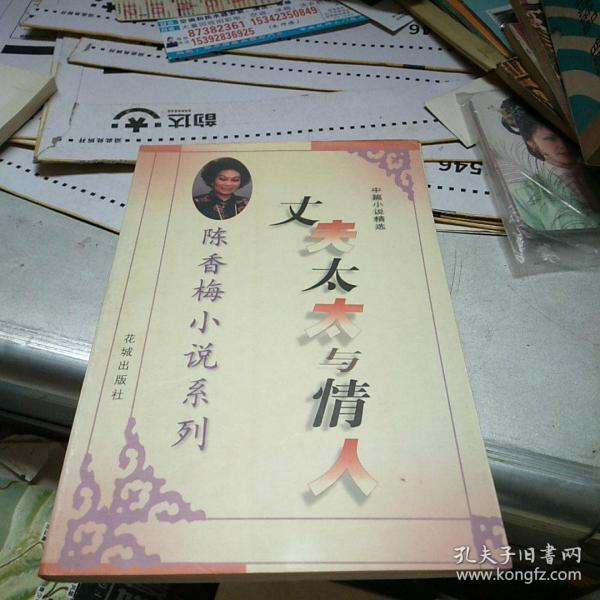 87382361 15342350849
15392836925
韵达
546
546
中篇小说精选
丈夫太太与情人
陈香梅小说系列
花城出版社
孔夫子旧书网
www.kongfz.com